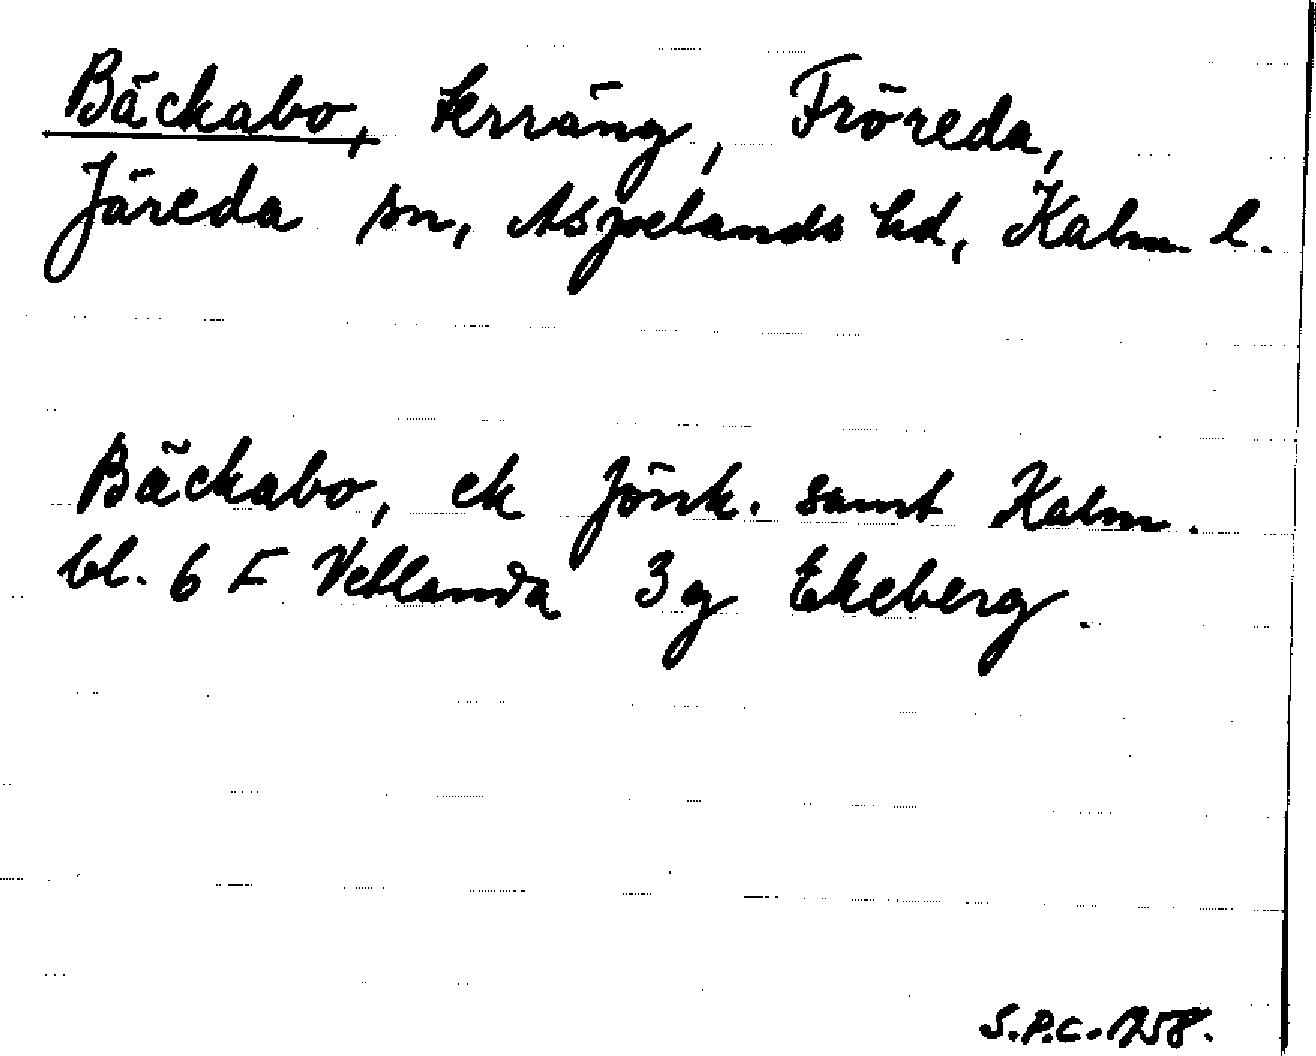 Bäckabo, terräng, Fröreda,
Järeda sn, Aspelands hd, Kalm. l.
Bäckabo, ek Jönk. samt Kalm.
bl. 6 F Vetlanda 3g Ekeberg.
S.P.C. 1958.